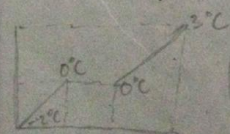 3°C
0°C
0°C
-2°C